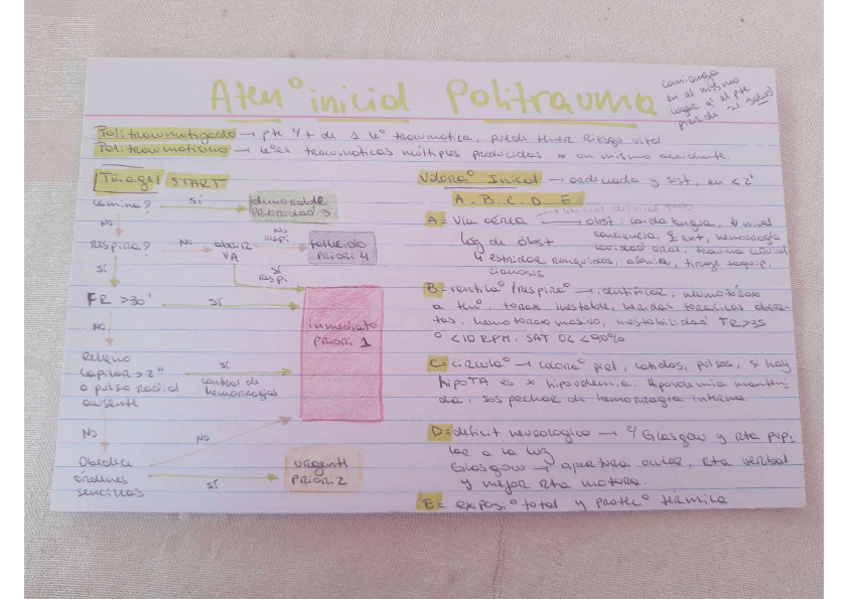 Atenº inicial Politrauma
comienza
en el mismo
lugar q el pte
pierde su salud
Politraumatizado → pte c/ + de 1 leº traumatica, puede tener riesgo vital
Politraumatismo → leºes traumaticas múltiples producidas x un mismo accidente.
Triage START
Camina?
SÍ
demorable
Prioridad 3
NO
Respira?
NO
abrir
VA
NO
respi
fallecido
Priori 4
SÍ
SÍ
respi
FR >30'
SÍ
inmediato
Priori 1
NO
Relleno
capilar >2"
o pulso radial
ausente
SÍ
control de
hemorragias
NO
NO
Obedece
órdenes
sencillas
SÍ
urgente
Priori 2
Valoraº Inicial → ordenada y sist, en <2'
A. B. C. D. E
A= Vía aérea → obst: caida lengua, ↓ nivel
conciencia, ext, hemorragia
sg de obst
cavidad oral, trauma
estridor, ronquidos, afonía, tiraje, taquip,
cianosis
B= ventilaº/respiraº → identificar: neumotórax
a tenº, torax inestable, heridas toracicas abier-
tas, hemotorax masivo, inestabilidad FR>35
º <10 RPM. SAT O2 <90%
C= circulaº → coloraº piel, latidos, pulsos, si hay
hipoTA es x hipovolemia. Hipovolemia manteni-
da: sospechar de hemorragia interna
D= deficit neurologico → c/ Glasgow y rta pupi
lar a la luz
Glasgow → apertura ocular, rta verbal
y mejor rta motora.
E= exposiº total y protecº térmica